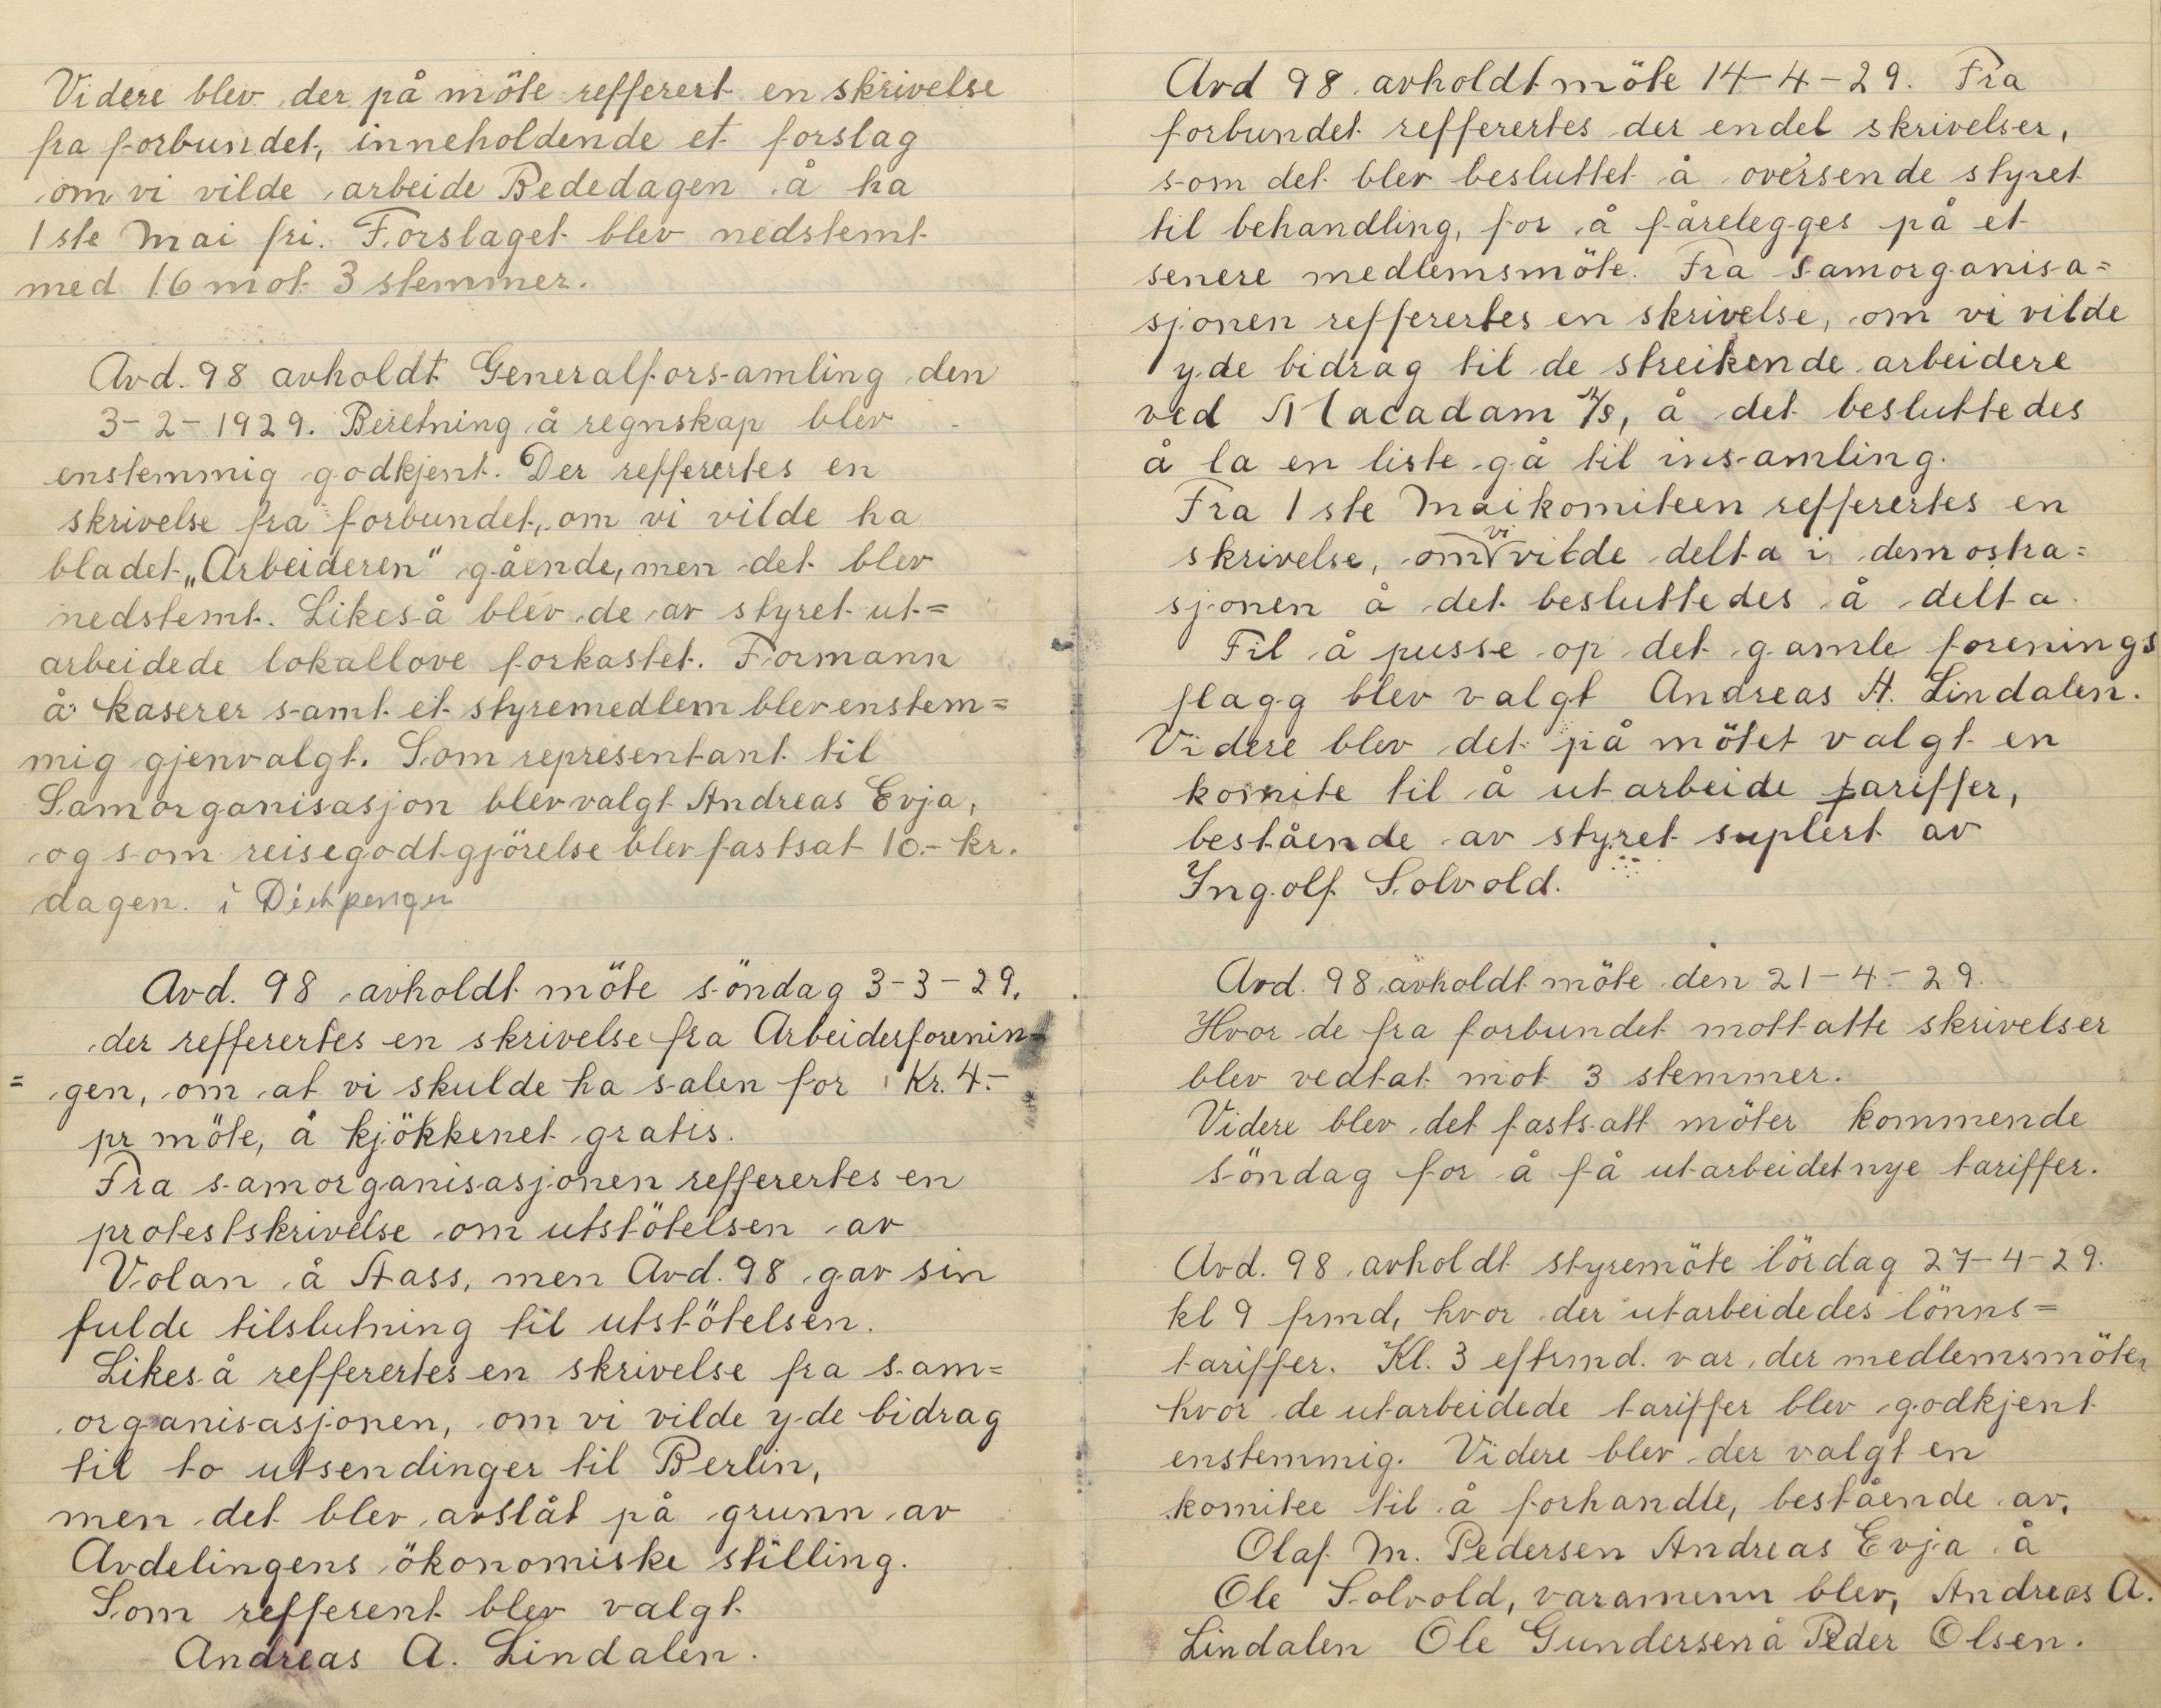 Videre blev der på möte refferert en skrivelse
fra forbundet, inneholdende et forslag
om vi vilde arbeide Bededagen å ha
1ste Mai fri. Forslaget blev nedstemt
med 16 mot 3 stemmer.
Avd. 98 avholdt Generalforsamling den
3-2-1929. Beretning å regnskap blev
enstemmig godkjent. Der refferertes en
skrivelse fra forbundet, om vi vilde ha
bladet „Arbeideren" gående, men det blev
nedstemt. Likeså blev de av styret ut=
arbeidede lokallove forkastet. Formann
å kaserer samt et styremedlem blev enstem=
mig gjenvalgt. Som representant til
Samorganisasjon blev valgt Andreas Evja,
og som reisegodtgjörelse blev fastsat 10.- kr.
dagen. i Dietpenger
Avd. 98 avholdt möte söndag 3-3-29,
der refferertes en skrivelse fra Arbeiderforenin=
= gen, om at vi skulde ha salen for Kr. 4.-
pr möte, å kjökkenet gratis.
Fra samorganisasjonen refferertes en
protestskrivelse om utstötelsen av
Volan å Aass, men Avd. 98 gav sin
fulde tilslutning til utstötelsen.
Likeså refferertes en skrivelse fra sam=
organisasjonen, om vi vilde yde bidrag
til to utsendinger til Berlin,
men det blev avslåt på grunn av
Avdelingens ökonomiske stilling.
Som refferent blev valgt
Andreas A. Lindalen.
Avd 98 avholdt möte 14-4-29. Fra
forbundet refferertes der endel skrivelser,
som det blev besluttet å oversende styret
til behandling, for å fårelegges på et
senere medlemsmöte. Fra Samorganisa=
sjonen refferertes en skrivelse, om vi vilde
yde bidrag til de streikende arbeidere
ved Macadam A/S, å det besluttedes
å la en liste gå til insamling.
Fra 1ste Maikomiteen refferertes en
skrivelse, om vi vilde delta i demostra=
sjonen å det besluttedes å delta.
Til å pusse op det gamle forenings
flagg blev valgt Andreas A. Lindalen.
Videre blev det på mötet valgt en
komite til å utarbeide tariffer,
bestående av styret suplert av
Ingolf Solvold.
Avd. 98 avholdt möte den 21-4-29.
Hvor de fra forbundet mottatte skrivelser
blev vedtat mot 3 stemmer.
Videre blev det fastsatt möter kommende
söndag for å få utarbeidet nye tariffer.
Avd. 98 avholdt styremöte lördag 27-4-29.
kl 9 frmd, hvor der utarbeidedes lönns=
tariffer. Kl. 3 eftrmd. var der medlemsmöte,
hvor de utarbeidede tariffer blev godkjent
enstemmig. Videre blev der valgt en
komitee til å forhandle, bestående av,
Olaf M. Pedersen Andreas Evja å
Ole Solvold, varamenn blev, Andreas A.
Lindalen Ole Gundersen å Peder Olsen.